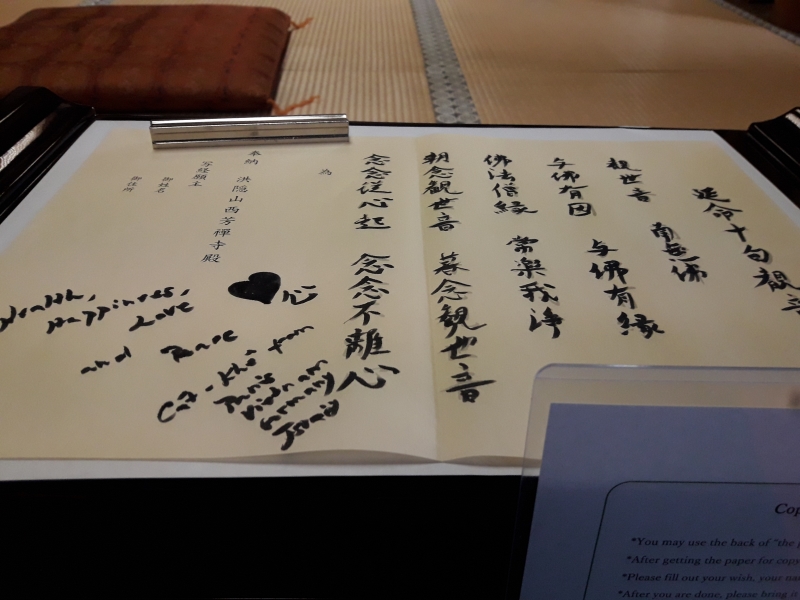 延命十句観音
観世音 南無佛
与佛有因 与佛有縁
佛法僧縁 常楽我浄
朝念観世音 暮念観世音
念念従心起 念念不離心
為
奉納 洪隠山西芳禪寺殿
写経願主
御姓名
御住所
心
Happiness,
Love
and
Paris
Vietnam
Germany
Israel
*You may use the back of "the
*After getting the paper for
*Please fill out your wish, your
*After you are done, please bring